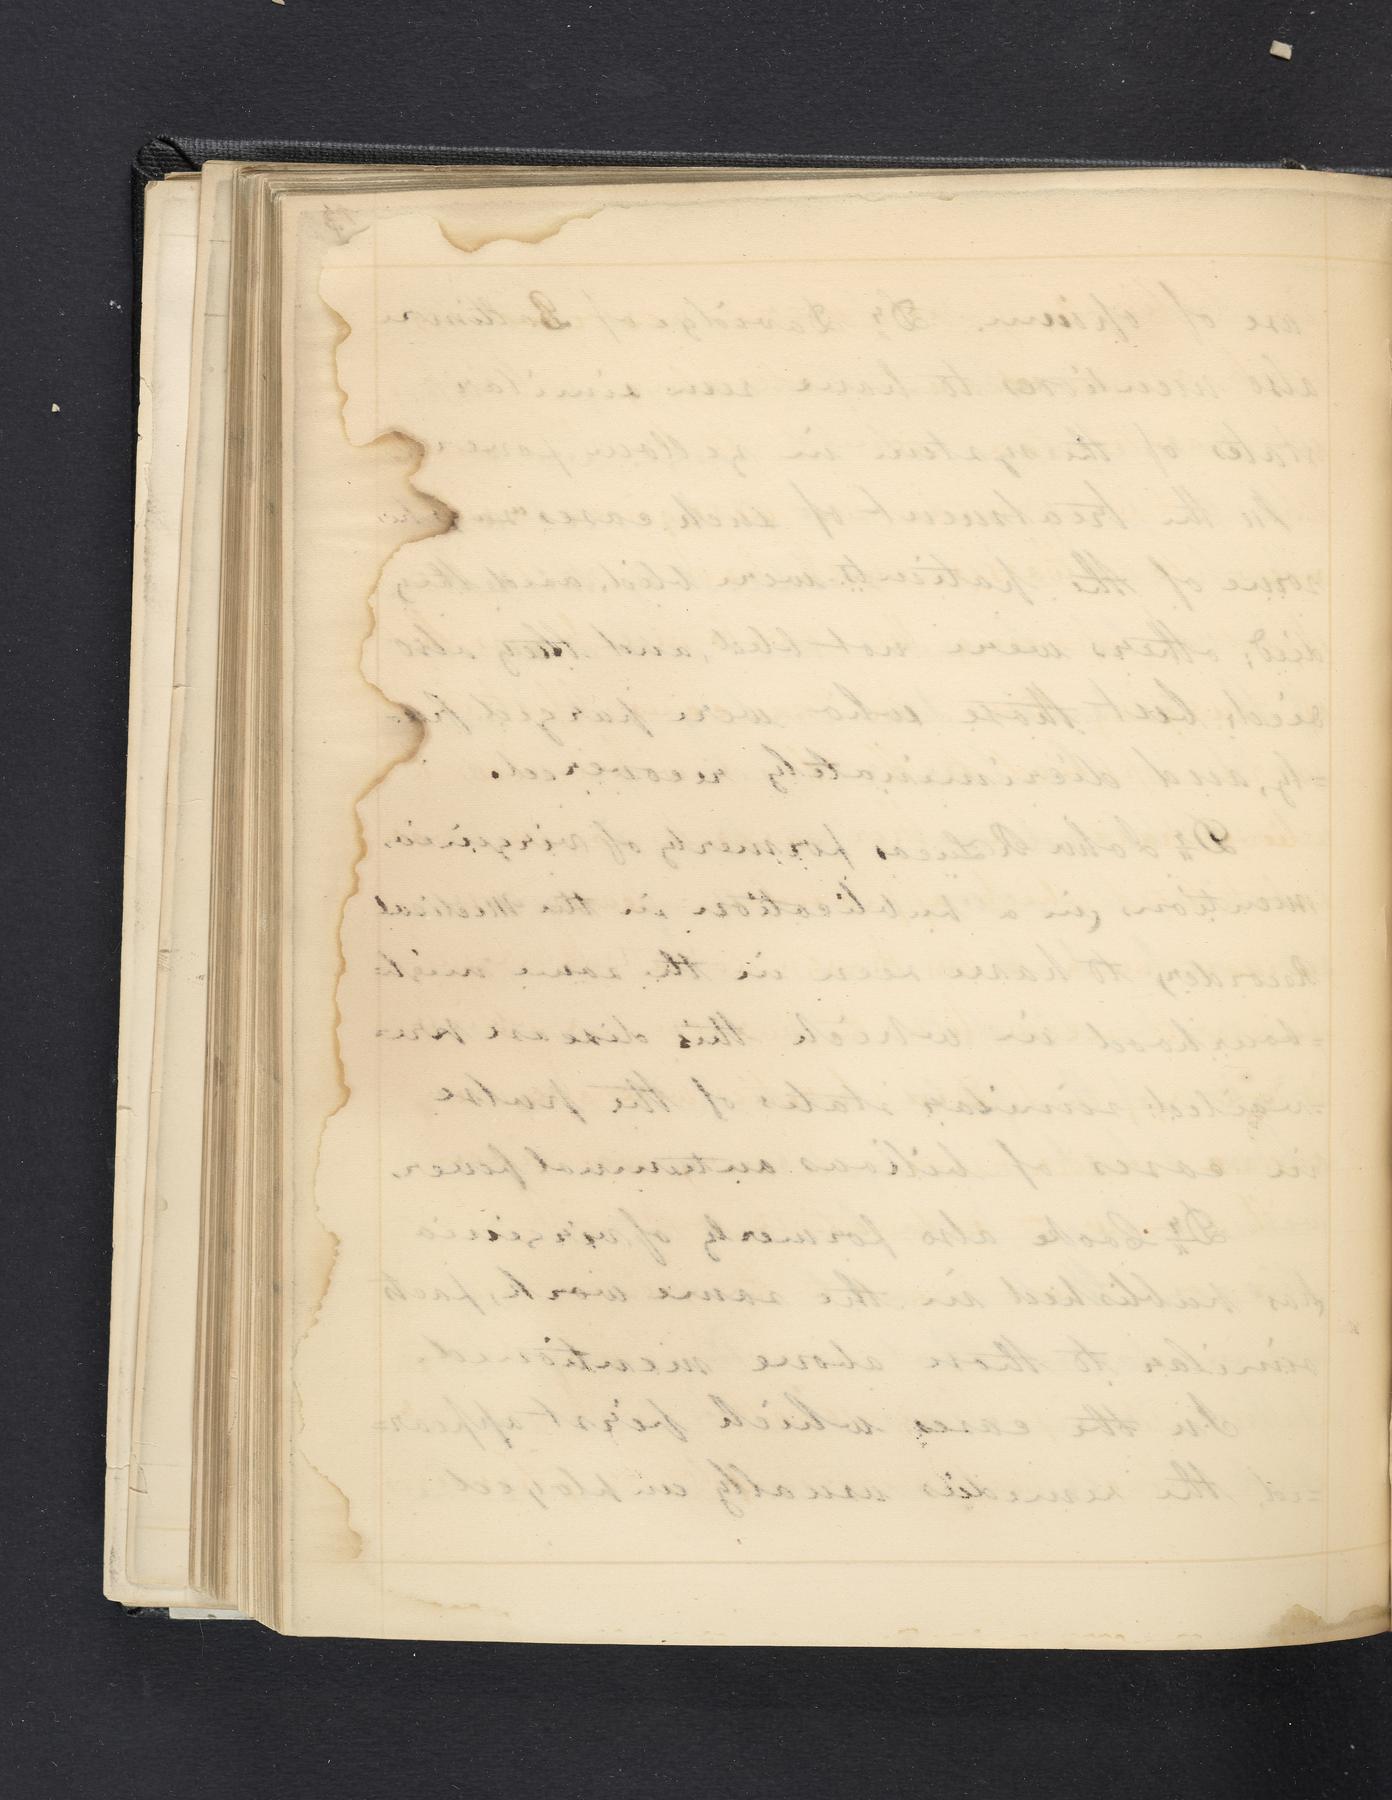 13
use of opium. Dr Davidge of Baltimore
also mentions to have seen similar
states of the system in yellow fever.
In the treatment of such cases
some of the patients were bled, and they
died, others were not bled, and they also
died, but those who were purged free-
=ly, and discriminately recovered.
Dr John formerly of virginia,
mentions (in a publication in the Medical
Recorder) to have seen in the same neigh-
=bourhood in which this disease pre
=vailed, similar states of the pulse
in cases of bilious autumnal fever.
Dr Cooke also formerly of virginia
has published in the same work, facts
similar to those above mentioned.
In the cases which first appear=
=ed, the remedies usually employed